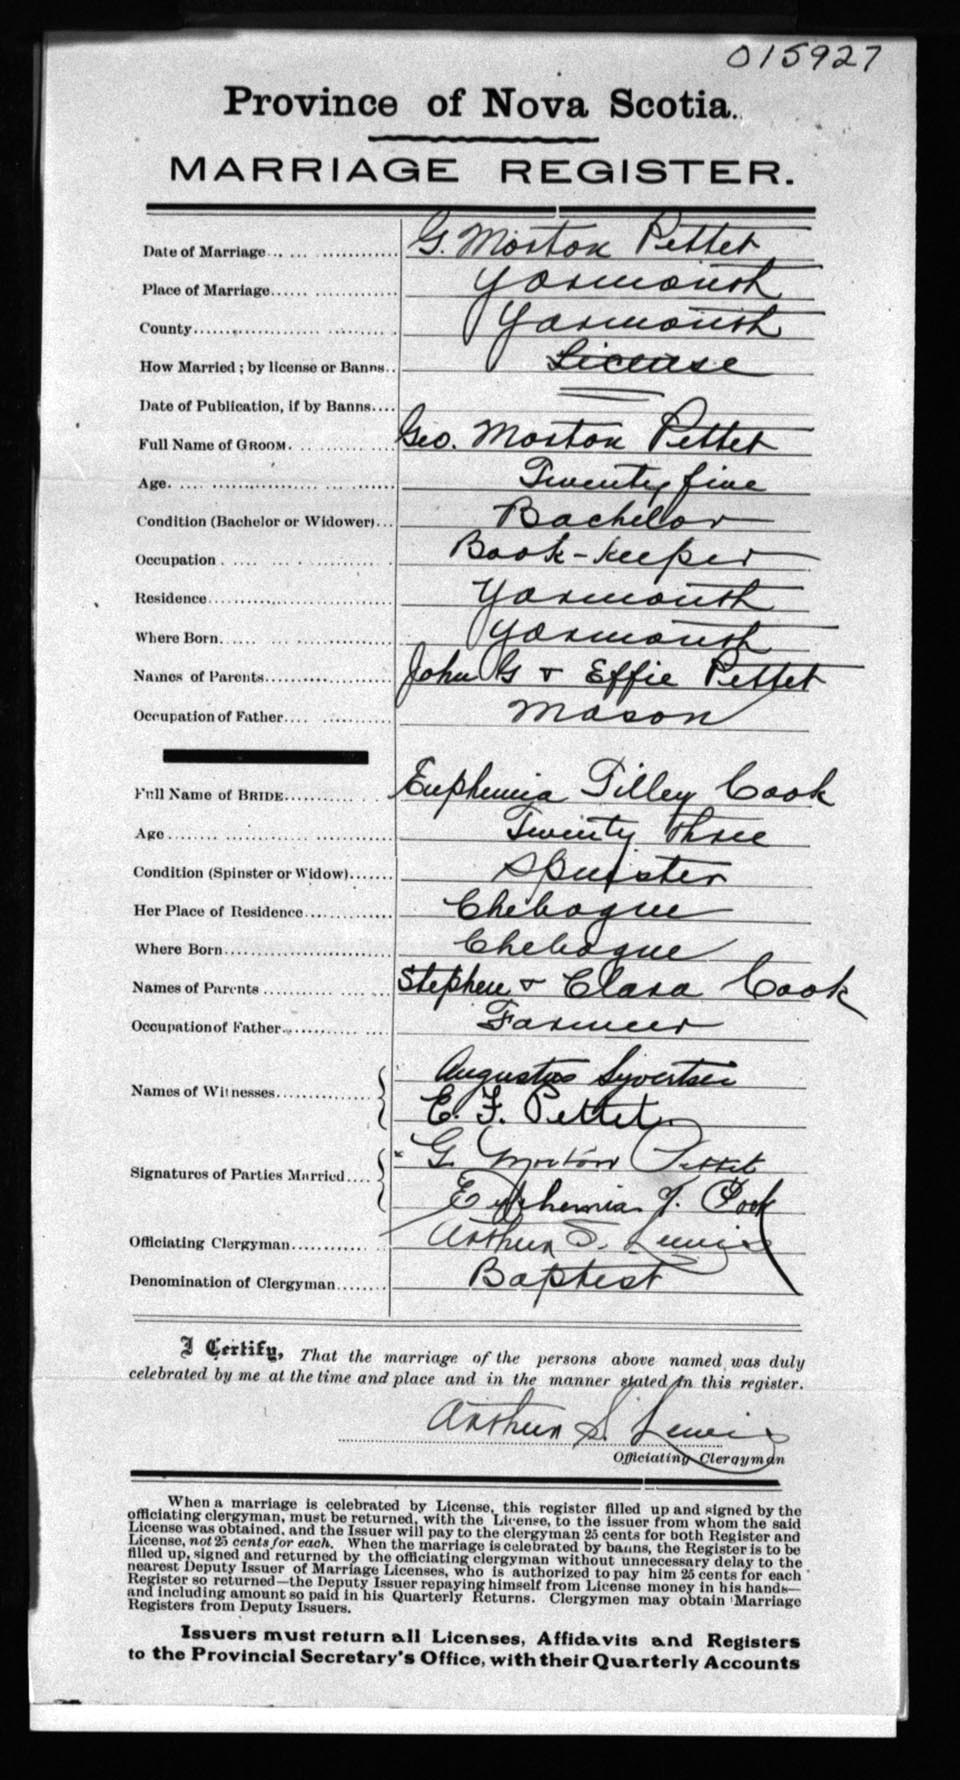 015927
Province of Nova Scotia.
MARRIAGE REGISTER.
Date of Marriage G. Morton Pettet
Place of Marriage Yarmouth
County Yarmouth
How Married ; by license or Banns.. License
Date of Publication, if by Banns....
Full Name of GROOM. Geo. Morton Pettet
Age. Twenty five
Condition (Bachelor or Widower)... Bachelor
Occupation Book-keeper
Residence Yarmouth
Where Born. Yarmouth
Names of Parents John G & Effie Pettet
Occupation of Father Mason
Full Name of BRIDE Euphemia Tilley Cook
Age Twenty three
Condition (Spinster or Widow) Spinster
Her Place of Residence Chebogue
Where Born Chebogue
Names of Parents Stephen & Clara Cook
Occupation of Father Farmer
Augustus Sivertsen
Names of Witnesses
E. F. Pettet
G. Morton Pettet
Signatures of Parties Married....
Euphemia T. Cook
Officiating Clergyman Arthur S. Lewis
Denomination of Clergyman Baptist
I Certify, That the marriage of the persons above named was duly
celebrated by me at the time and place and in the manner stated in this register.
Arthur S. Lewis
Officiating Clergyman
When a marriage is celebrated by License, this register filled up and signed by the
officiating clergyman, must be returned, with the License, to the issuer from whom the said
License was obtained, and the Issuer will pay to the clergyman 25 cents for both Register and
License, not 25 cents for each. When the marriage is celebrated by banns, the Register is to be
filled up, signed and returned by the officiating clergyman without unnecessary delay to the
nearest Deputy Issuer of Marriage Licenses, who is authorized to pay him 25 cents for each
Register so returned—the Deputy Issuer repaying himself from License money in his hands—
and including amount so paid in his Quarterly Returns. Clergymen may obtain Marriage
Registers from Deputy Issuers.
Issuers must return all Licenses, Affidavits and Registers
to the Provincial Secretary's Office, with their Quarterly Accounts